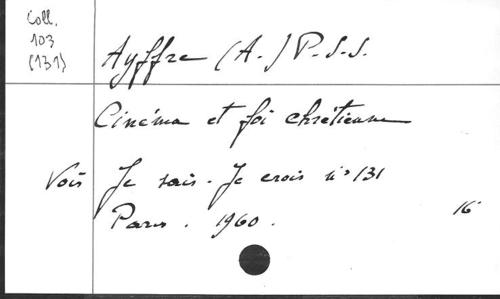 Coll.
103
(131)
Ayffre (A.) P.S.S.
Cinéma et foi chrétienne
Voir Je sais. Je crois n° 131
Paris. 1960. 16